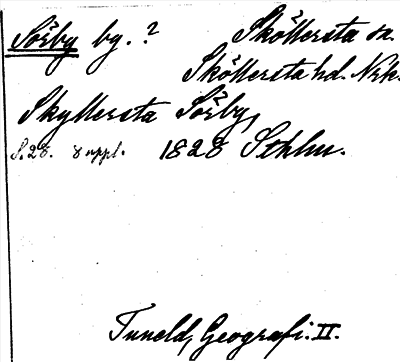 Sörby by.? Sköllersta sn.
Sköllersta hd. Nrk.
Skyllersta Sörby,
S. 28. 8 uppl. 1828 Sthlm.
Tuneld, Geografi. II.